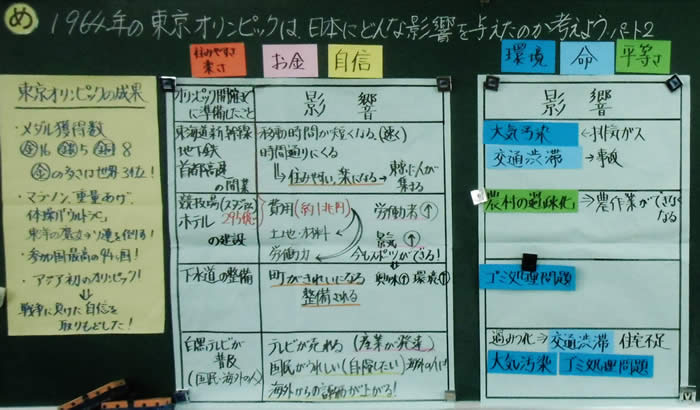 め 1964年の東京オリンピックは、日本にどんな影響を与えたのか考えよう パート2
住みやすさ
楽さ
お金
自信
環境
命
平等さ
東京オリンピックの成果
・メダル獲得数
金16 銀5 銅8
金の多さは世界3位!
・マラソン、重量あげ、
体操「ウルトラC」
東洋の魔女→ソ連を倒す!
・参加国最高の94か国!
・アジア初のオリンピック!
戦争に負けた自信を
取りもどした!
オリンピック開催までに準備したこと
影響
東海道新幹線
地下鉄
首都高速
の開業
移動時間が短くなる。(速く)
時間通りにくる
→住みやすい、楽になる
→東京に人が集まる
競技場(スタジアム)
ホテル 295億
の建設
費用(約1兆円)
土地・材料
労働力
労働者↑
景気↑
今もスポーツができる!
下水道の整備
町がきれいになる
整備される
興味↑環境↑
白黒テレビが
普及
(国民・海外の人)
テレビが売れる(産業が発達)
国民がうれしい(自慢したい)海外の人に
海外からの評価が上がる!
影響
大気汚染 ←排気ガス
交通渋滞 →事故
農村の過疎化 ⇒農作業ができなくなる
ゴミ処理問題
過密化⇒交通渋滞 住宅不足
大気汚染 ゴミ処理問題